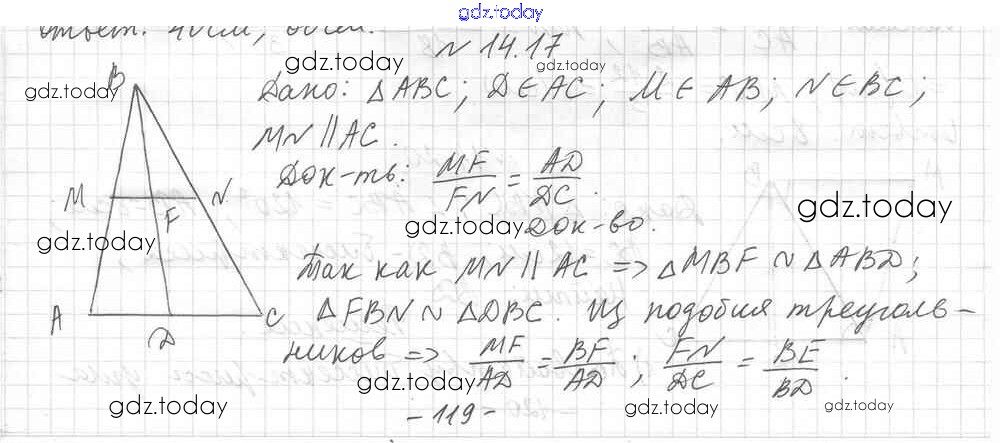 gdz.today
ответ: 40см, 60см.
№ 14.17
gdz.today
gdz.today
gdz.today
B
Дано: △ABC; D∈AC; M∈AB; N∈BC;
MN∥AC.
Док-ть: MF/FN = AD/DC.
M F N
gdz.today
gdz.today
gdz.today
Док-во.
Так как MN∥AC => △MBF ~ △ABD;
A D C
△FBN ~ △DBC. Из подобия треуголь-
ников => MF/AD = BF/AD; FN/DC = BE/BD.
gdz.today
gdz.today
gdz.today
gdz.today
-119-